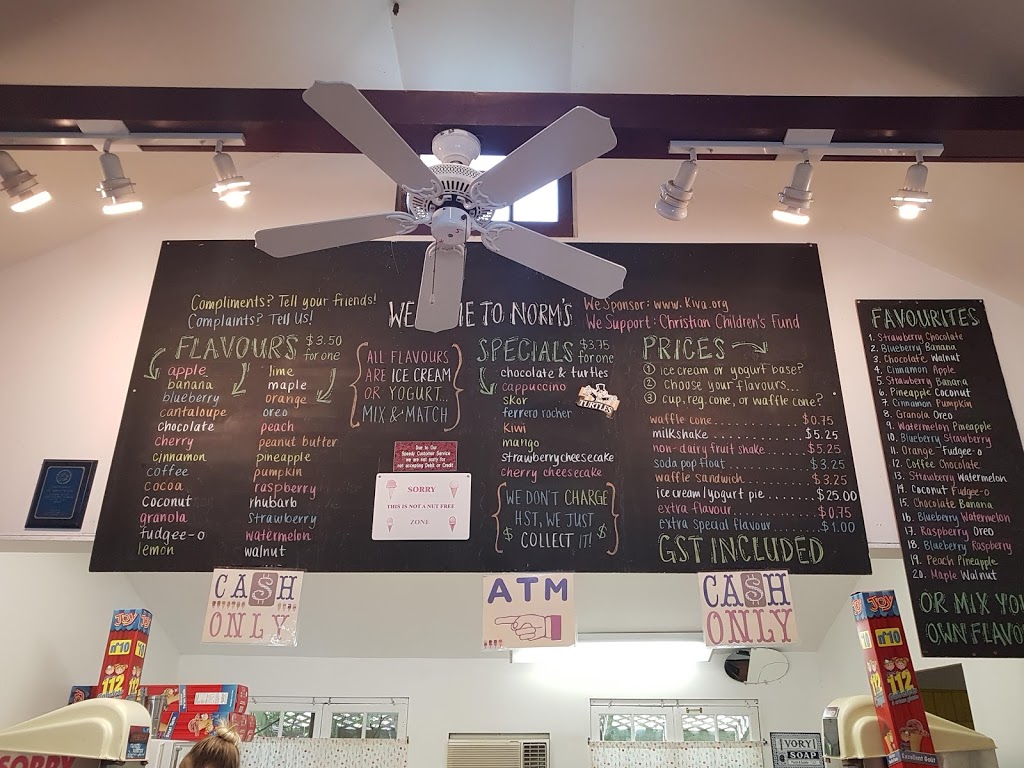 Compliments? Tell your friends!
Complaints? Tell Us!
WE ME TO NORM'S
We Sponsor: www.Kiva.org
We Support: Christian Children's Fund
FLAVOURS $3.50
for one
apple
banana
blueberry
cantaloupe
chocolate
cherry
cinnamon
coffee
cocoa
coconut
granola
fudgee-o
lemon
lime
maple
orange
oreo
peach
peanut butter
pineapple
pumpkin
raspberry
rhubarb
strawberry
watermelon
walnut
ALL FLAVOURS
ARE ICE CREAM
OR YOGURT...
MIX & MATCH
Due to the
Speedy Customer Service
we are not sorry for
not accepting Debit or Credit
SORRY
THIS IS NOT A NUT FREE
ZONE
SPECIALS $3.75
for one
chocolate & turtles
cappuccino
skor
ferrero rocher
kiwi
mango
strawberry cheesecake
cherry cheesecake
TURTLES
WE DON'T CHARGE
HST, WE JUST
$ COLLECT IT! $
PRICES
1 ice cream or yogurt base?
2 choose your flavours...
3 cup, reg. cone, or waffle cone?
waffle cone............$0.75
milkshake..............$5.25
non-dairy fruit shake.....$5.25
soda pop float...........$3.25
waffle sandwich.........$3.25
ice cream/yogurt pie......$25.00
extra flavour............$0.75
extra special flavour......$1.00
GST INCLUDED
FAVOURITES
1. Strawberry Chocolate
2. Blueberry Banana
3. Chocolate Walnut
4. Cinnamon Apple
5. Strawberry Banana
6. Pineapple Coconut
7. Cinnamon Pumpkin
8. Granola Oreo
9. Watermelon Pineapple
10. Blueberry Strawberry
11. Orange Fudgee-o
12. Coffee Chocolate
13. Strawberry Watermelon
14. Coconut Fudgee-o
15. Chocolate Banana
16. Blueberry Watermelon
17. Raspberry Oreo
18. Blueberry Raspberry
19. Peach Pineapple
20. Maple Walnut
OR MIX YO
OWN FLAVO
CA$H
ONLY
ATM
CA$H
ONLY
JOY
nº10
112
JOY
nº10
112
Excellent Goût
IVORY
SOAP
SORRY